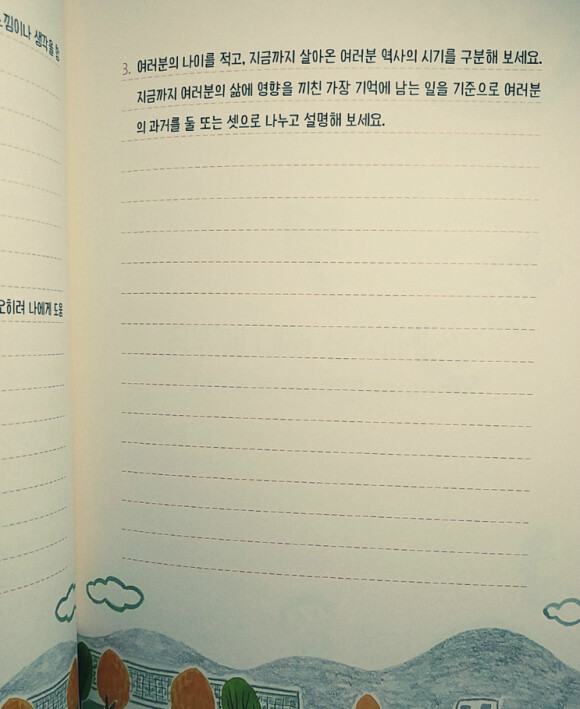 생각을
3. 여러분의 나이를 적고, 지금까지 살아온 여러분 역사의 시기를 구분해 보세요.
지금까지 여러분의 삶에 영향을 끼친 가장 기억에 남는 일을 기준으로 여러분
의 과거를 둘 또는 셋으로 나누고 설명해 보세요.
오히려 나에게 도움